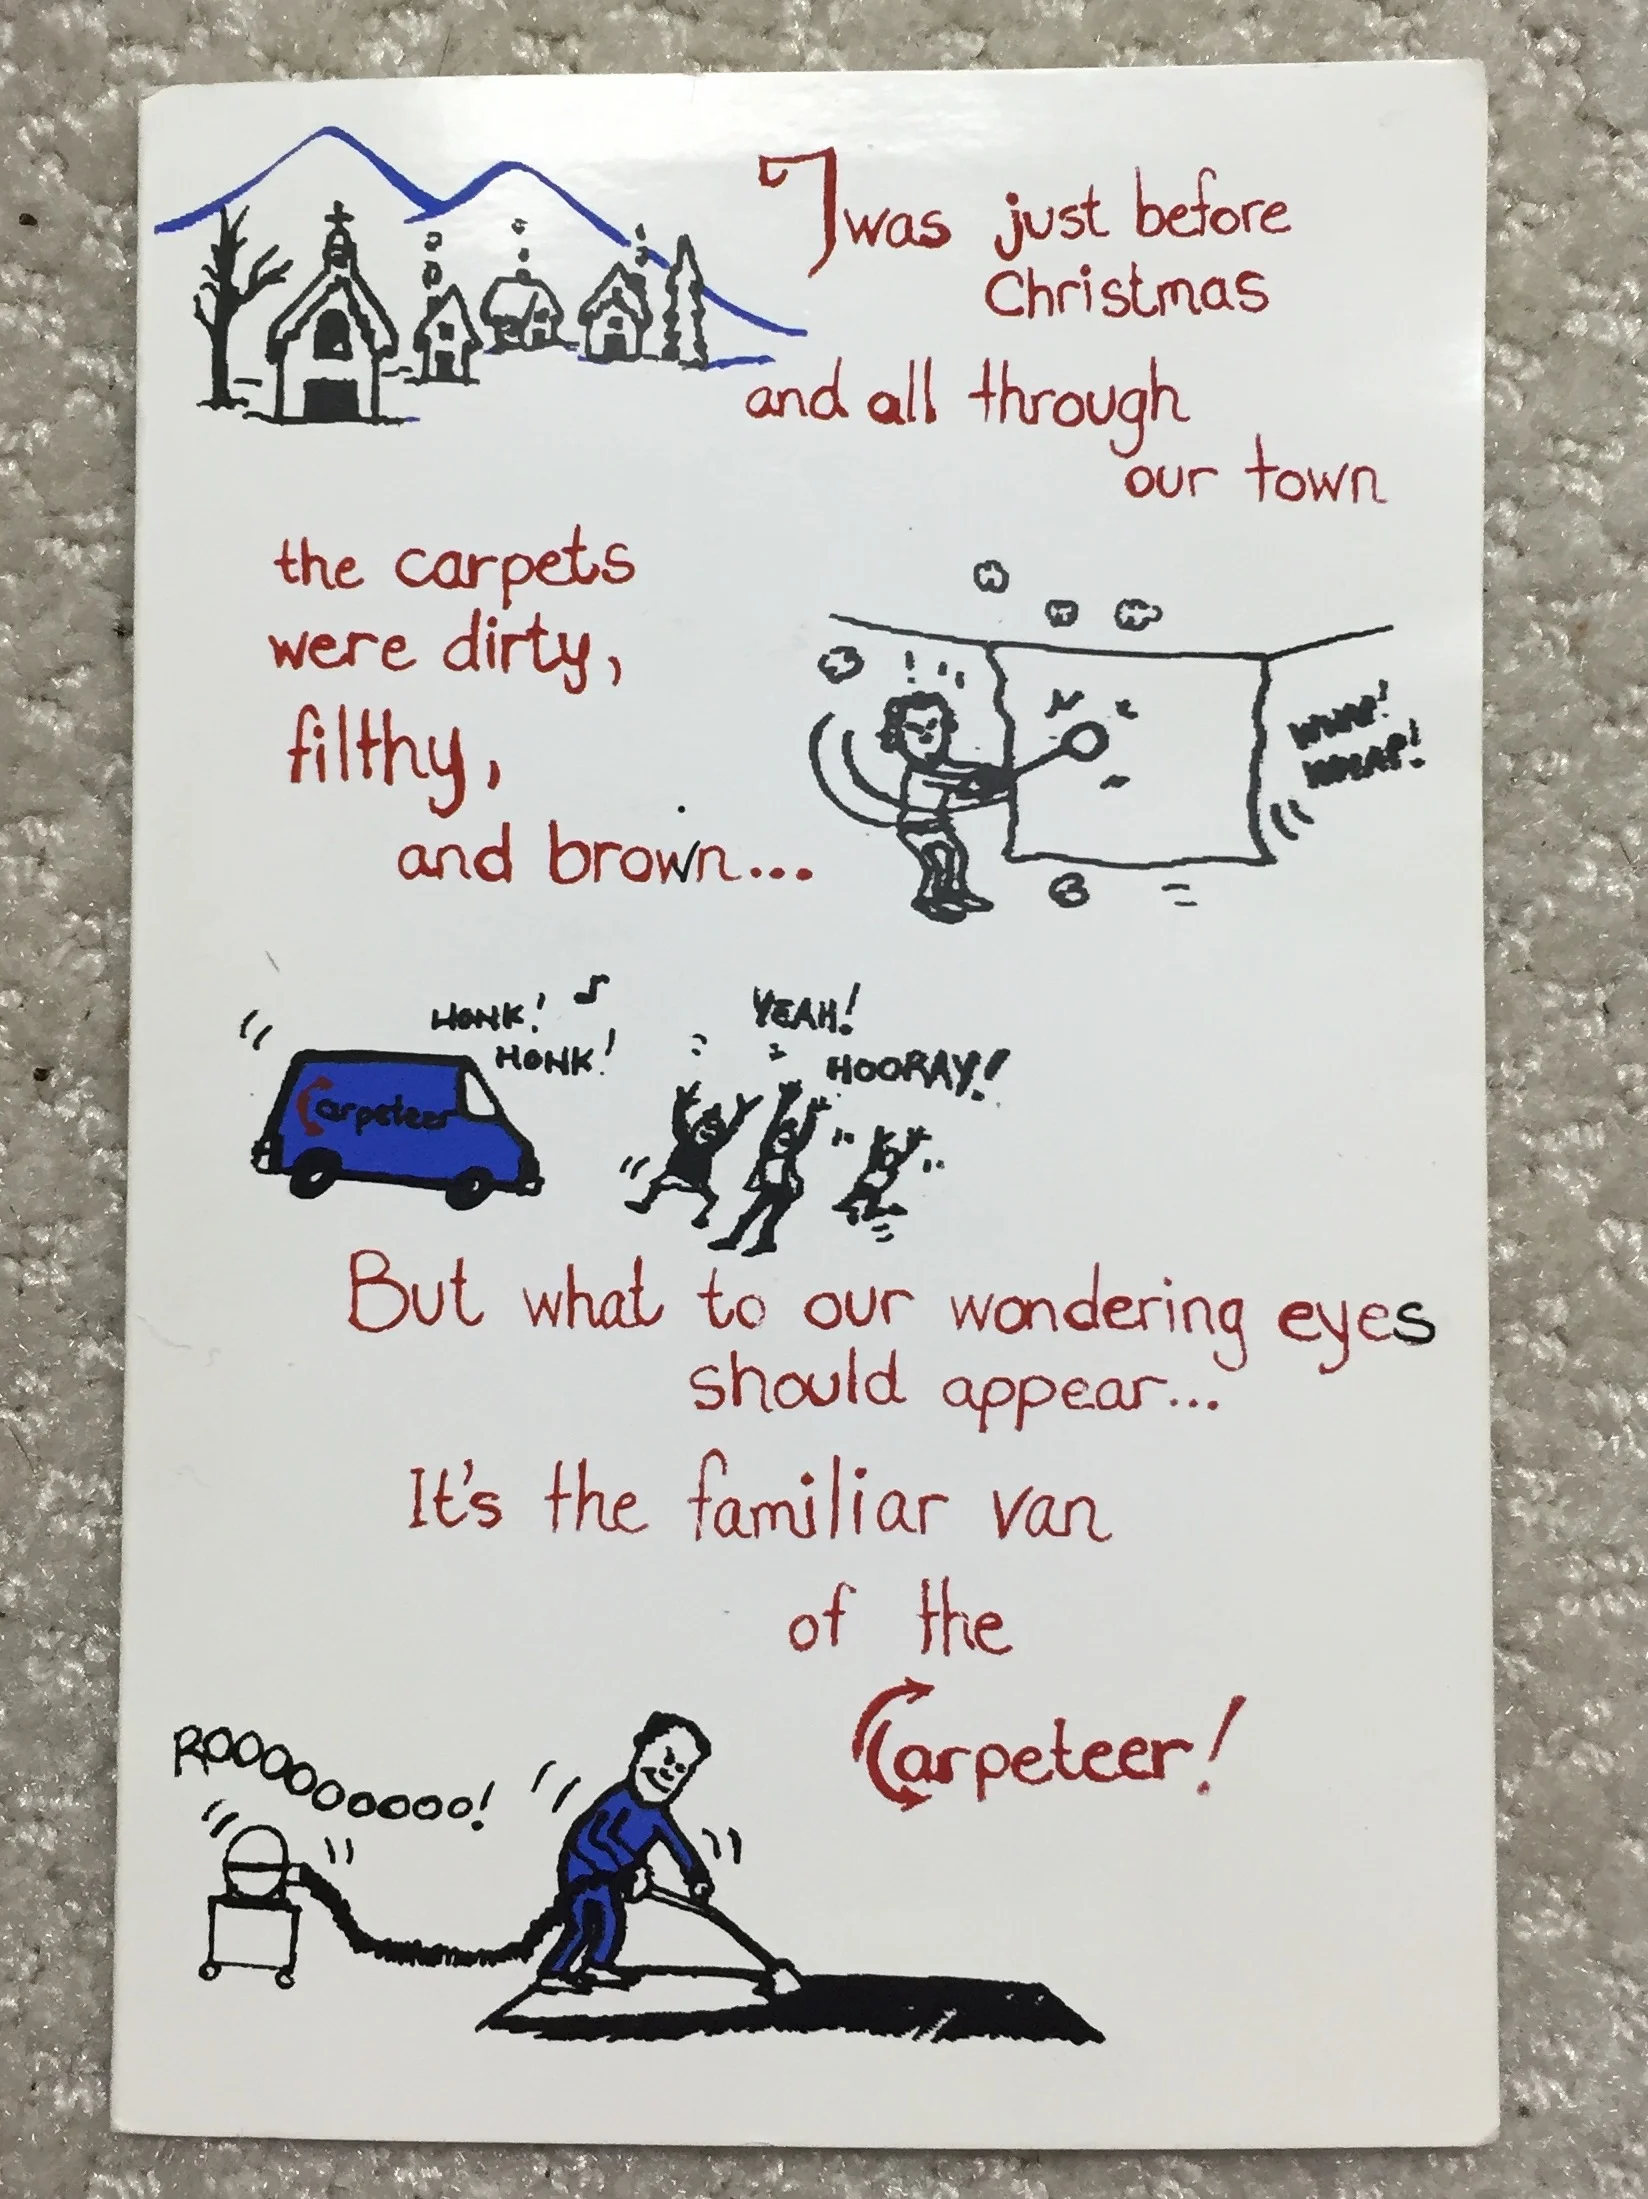 Twas just before
Christmas
and all through
our town
the carpets
were dirty,
filthy,
and brown...
WHAP!
WHAP!
HONK!
HONK!
YEAH!
HOORAY!
Carpeteer
But what to our wondering eyes
should appear...
It's the familiar van
of the
Carpeteer!
ROOOOOOOOOO!